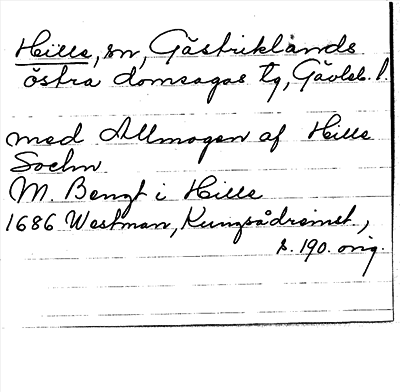 Hille, sn, Gästriklands
östra domsagas tg, Gävleb. l.
med Allmogen af Hille
Sochn
M. Bengt i Hille
1686 Westman, Kungsådrainst.,
s. 190. orig.